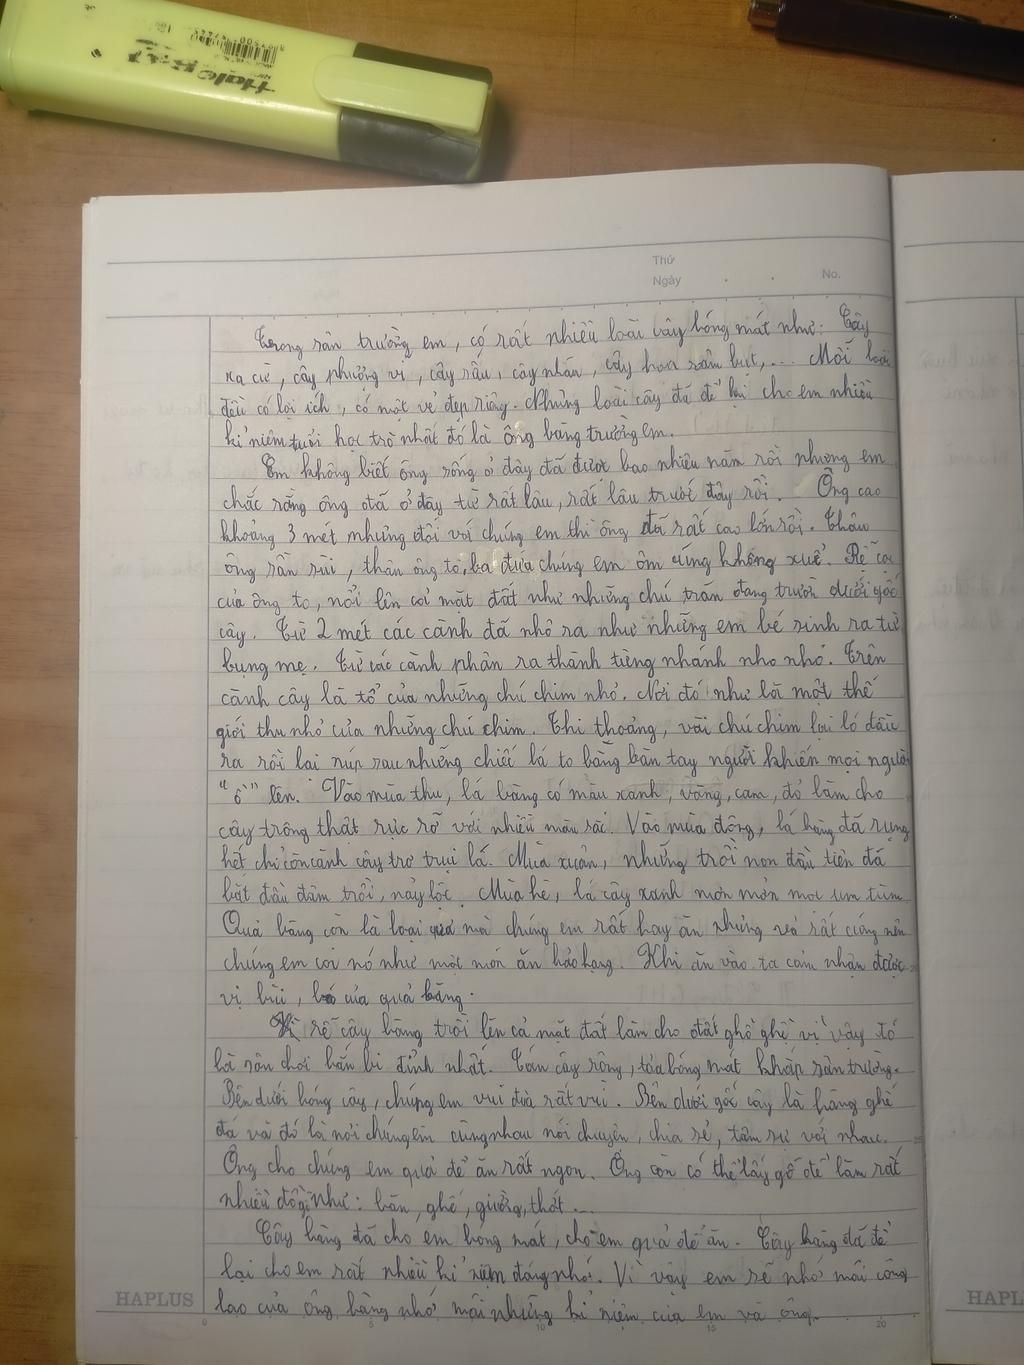 Hale
Thứ
Ngày . . No.
Trong sân trường em, có rất nhiều loài cây bóng mát như: Cây
xà cừ, cây phượng vĩ, cây sấu, cây nhãn, cây hoa râm bụt,... Mỗi loài
đều có lợi ích, có một vẻ đẹp riêng. Những loài cây đã để lại cho em nhiều
kỉ niệm tuổi học trò nhất đó là ông bàng trường em.
Em không biết ông sống ở đây đã được bao nhiêu năm rồi nhưng em
chắc rằng ông đã ở đây từ rất lâu, rất lâu trước đây rồi. Ông cao
khoảng 3 mét nhưng đối với chúng em thì ông đã rất cao lớn rồi. Thân
ông sần sùi, thân ông to, ba đứa chúng em ôm cũng không xuể. Rễ cọc
của ông to, nổi lên cả mặt đất như những chú trăn đang trườn dưới gốc
cây. Từ 2 mét các cành đã nhô ra như những em bé sinh ra từ
bụng mẹ. Từ các cành phân ra thành từng nhánh nho nhỏ. Trên
cành cây là tổ của những chú chim nhỏ. Nơi đó như là một thế
giới thu nhỏ của những chú chim. Thi thoảng, vài chú chim lại ló đầu
ra rồi lại núp sau những chiếc lá to bằng bàn tay người khiến mọi người
"ồ" lên. Vào mùa thu, lá bàng có màu xanh, vàng, cam, đỏ làm cho
cây trông thật rực rỡ với nhiều màu sắc. Vào mùa đông, lá bàng đã rụng
hết chỉ còn cành cây trơ trụi lá. Mùa xuân, những trồi non đầu tiên đã
bắt đầu đâm trồi, nảy lộc. Mùa hè, lá cây xanh mơn mởn mọc um tùm.
Quả bàng còn là loại quả mà chúng em rất hay ăn nhưng vỏ rất cứng nên
chúng em coi nó như một món ăn hảo hạng. Khi ăn vào ta cảm nhận được
vị bùi, của quả bàng.
Vì rễ cây bàng trồi lên cả mặt đất làm cho đất ghồ ghề vì vậy đó
là sân chơi bắn bi đỉnh nhất. Tán cây rộng, tỏa bóng mát khắp sân trường.
Bên dưới bóng cây, chúng em vui đùa rất vui. Bên dưới gốc cây là hàng ghế
đá và đó là nơi chúng em cùng nhau nói chuyện, chia sẻ, tâm sự với nhau.
Ông cho chúng em quả để ăn rất ngon. Ông còn có thể lấy gỗ để làm rất
nhiều đồ gỗ như: bàn, ghế, giường, thớt ...
Cây bàng đã cho em bóng mát, cho em quả để ăn. Cây bàng đã để
lại cho em rất nhiều kỉ niệm đáng nhớ. Vì vậy em sẽ nhớ mãi công
lao của ông bàng nhớ mãi những kỉ niệm của em và ông.
HAPLUS
0 5 10 15 20
HAPL